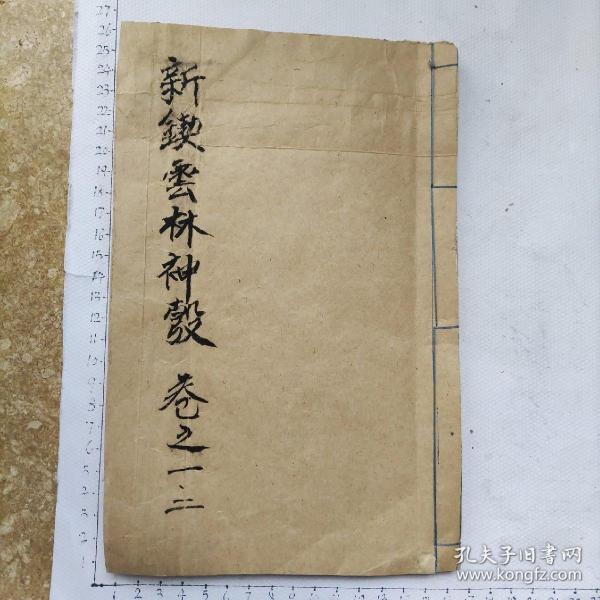 新鍥雲林神彀 卷之一、二
孔夫子旧书网
www.kongfz.com